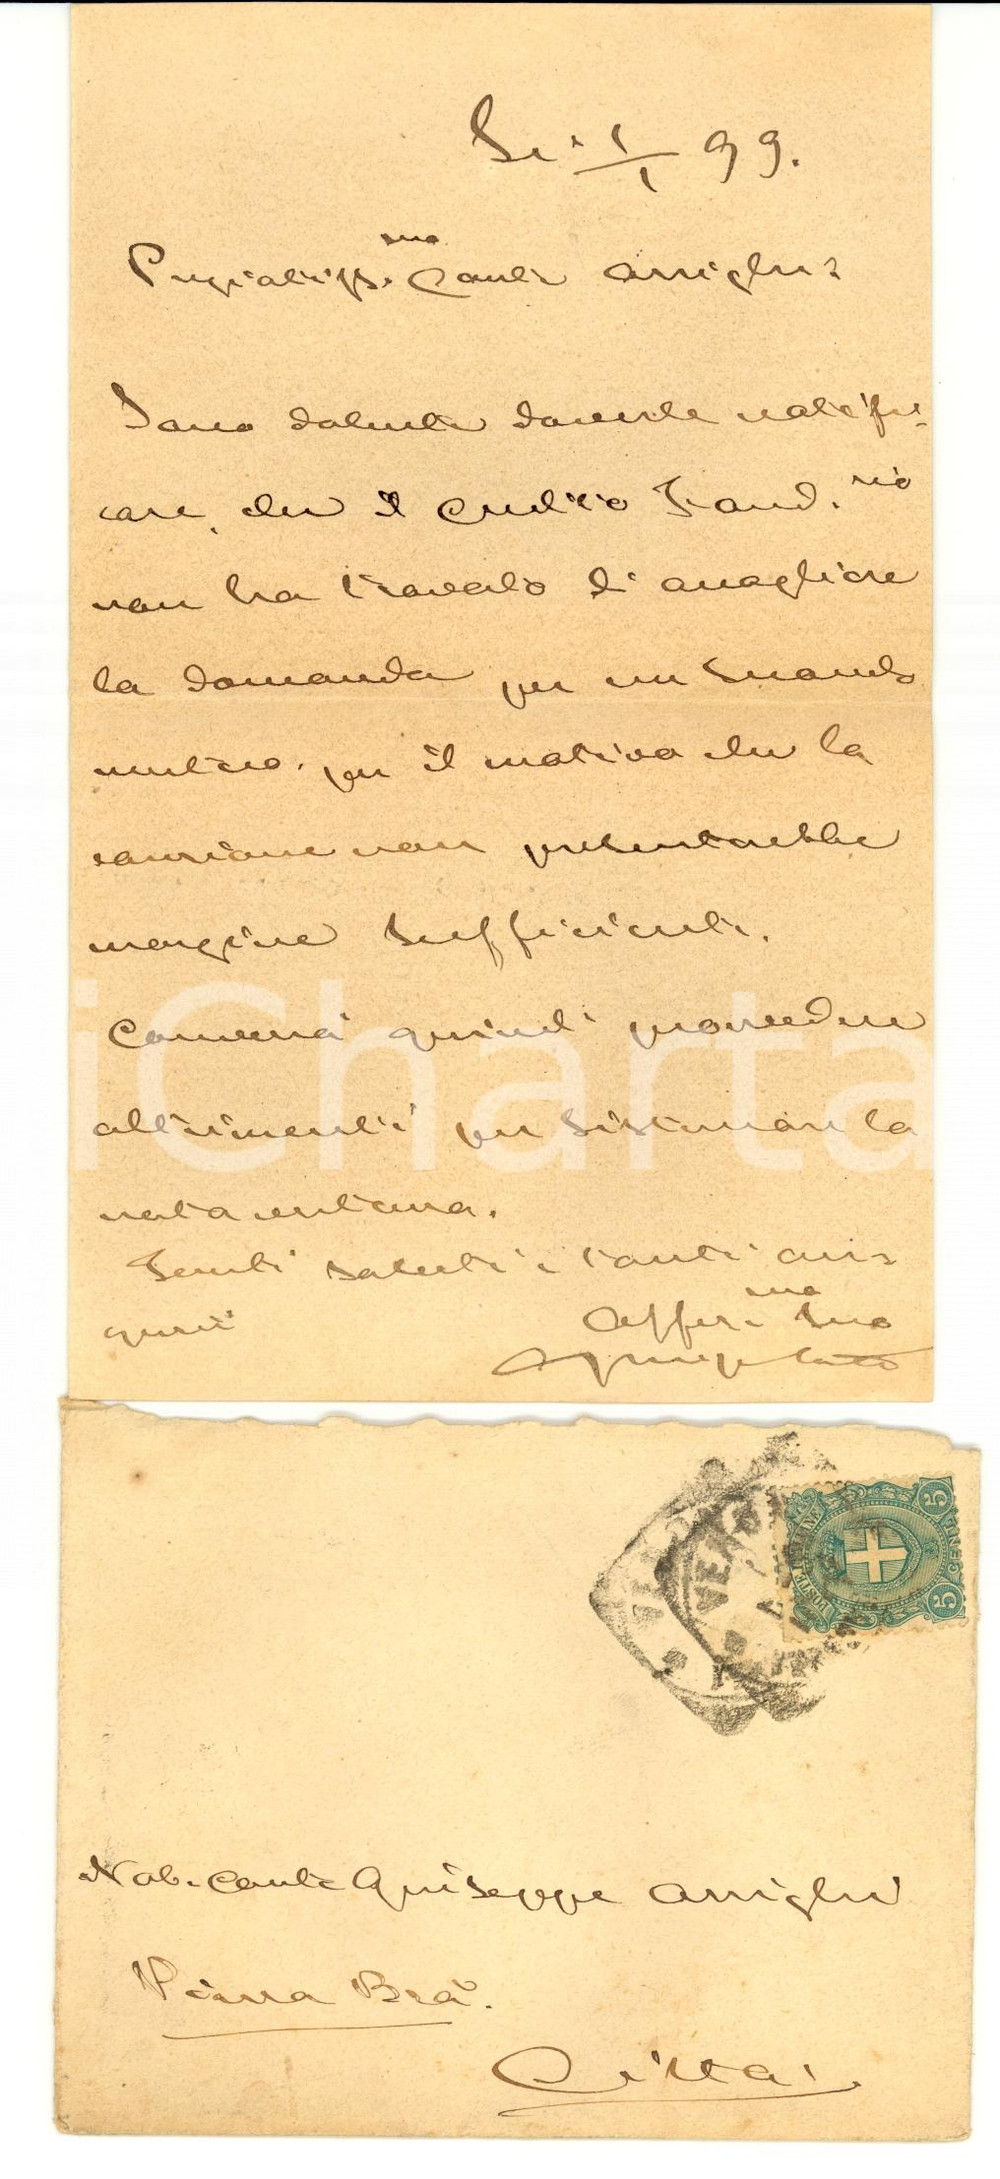 Li 1/1 99.
Pregiatiss.mo Conte Arrighi
Sono dolente doverle notifi-
care, che il Credito Fond.rio
non ha trovato di accogliere
la domanda per un secondo
mutuo. per il motivo che la
cauzione non presenterebbe
margine sufficiente.
Converrà quindi provvedere
altrimenti per sistemare la
nota vertenza.
Tanti saluti e tanti au-
guri
Affez.mo Suo
iCharta
POSTE ITALIANE
CENT
5
5
VERONA
Nob. Conte Giuseppe Arrighi
Piazza Brà.
Città